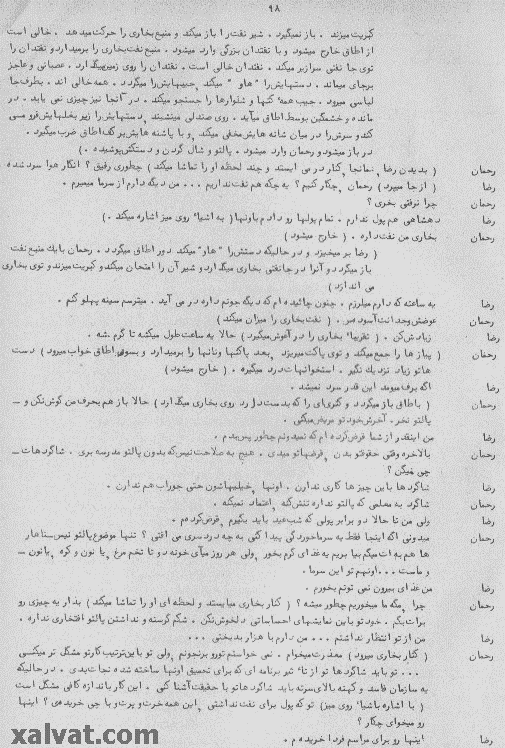 ۹۸
کبریت میزند . باز نمیگیرد . شیر نفت را باز میکند و منبع بخاری را حرکت میدهد . خالی است
از اطاق خارج میشود و با نفتدان بزرگی وارد میشود . منبع نفت بخاری را برمیدارد و نفتدان را
توی جا نفتی سرازیر میکند . نفتدان خالی است . نفتدان را روی زمین میگذارد . عصبانی و عاجز
برجای میماند . دستهایش را " هاو " میکند جیبهایش را میگردد . همه خالی اند . بطرف جا
لباسی میرود . جیب همه کتها و شلوارها را جستجو میکند . در آنجا نیز چیزی نمی یابد . در
مانده و خشمگین بوسط اطاق میآید . روی صندلی مینشیند و دستهایش را زیر بغلهایش فرو می
کند و سرش را در میان شانه هایش مخفی میکند و با پاشنه هایش بر کف اطاق ضرب میگیرد .
در باز میشود و رحمان وارد میشود . پالتو و شال گردن و دستکش پوشیده . )
رحمان ( بدیدن رضا همانجا کنار در می ایستد و چند لحظه او را تماشا میکند ) چطوری رفیق ؟ انگار هوا سرد شده
رضا ( از جا میپرد ) رحمان چکار کنیم ؟ یه چکه هم نفت نداریم ... من دیگه دارم از سرما میمیرم .
رحمان چرا نرفتی بخری ؟
رضا دهشاهی هم پول ندارم . تمام پولها رو دادم باونها ( به اشیاء روی میز اشاره میکند . )
رحمان بخاری من نفت داره . ( خارج میشود )
( رضا بر میخیزد و در حالیکه دستش را " هاو " میکند دور اطاق میگردد . رحمان با یک منبع نفت
باز میگردد و آنرا در جا نفتی بخاری میگذارد و شیر آن را امتحان میکند و کبریت میزند و توی بخاری
می اندازد )
رضا یه ساعته که دارم میلرزم . چنون چائیده ام که دیگه جونم داره در می آید . میترسم سینه پهلو کنم .
رحمان عوضش وجدانت آسوده س . ( نفت بخاری را میزان میکند )
رضا زیادش کن . ( تقریبا" بخاری را در آغوش میگیرد ) حالا یه ساعت طول میکشه تا گرم بشه .
رحمان ( پیازها را جمع میکند و توی پاکت میریزد بعد پاکتها و نانها را برمیدارد و بسوی اطاق خواب میرود ) دست
هاتو زیاد نزدیک نگیر . استخوانهات درد میگیره . ( خارج میشود )
رضا اگه برف میومد این قدر سرد نمیشد .
رحمان ( باطاق باز میگردد و کتری ای را که بدست دارد روی بخاری میگذارد ) حالا باز هم بحرف من گوش نکن و _
پالتو نخر . آخرش خودتو مریض میکنی .
رضا من اینقدر از شما قرض کرده ام که نمیدونم چطور پس بدم .
رحمان بالاخره وقتی حقوقتو بدن قرضهاتو میدی . هیچ به صلاحت نیس که بدون پالتو مدرسه بری . شاگردهات _
چی میگن ؟
رضا شاگردها باین چیزها کاری ندارن . اونها خیلیهاشون حتی جوراب هم ندارن .
رحمان شاگرد به معلمی که پالتو نداره تنش کنه اعتماد نمیکنه .
رضا ولی من تا حالا دو برابر پولی که شب عید باید بگیرم قرض کرده م .
رحمان میدونی اگه اینجا فقط یه سرماخوردگی پیدا کنی به چه دردسری می افتی ؟ تنها موضوع پالتو نیس _ ناهار
ها هم بهت میگم بیا بریم یه غذای گرم بخور ولی هر روز میآی خونه دو تا تخم مرغ یا نون و کره یا نون _
و ماست ... اونهم تو این سرما .
رضا من غذای بیرون نمی تونم بخورم .
رحمان چرا مگه ما میخوریم چطور میشه ؟ ( کنار بخاری میایستد و لحظه ای او را تماشا میکند ) بذار یه چیزی رو
برات بگم . خودتو باین نمایشهای احساساتی دلخوش نکن . شکم گرسنه و نداشتن پالتو افتخاری نداره .
رضا من از تو انتظار نداشتم ... من دارم با هزار بدبختی ...
رحمان ( کنار بخاری میرود ) معذرت میخوام . نمی خواستم تورو برنجونم ولی تو با این ترتیب کارتو مشکل تر میکنی
... تو باید شاگردها تو از تأثیر برنامه ای که برای تحمیق اونها ساخته شده نجات بدی . در حالیکه
یه سازمان فاسد و کهنه بالای سرته باید شاگردهاتو با حقیقت آشنا کنی . این کار باندازه کافی مشکل است
( با اشاره باشیاء روی میز ) تو که پول برای نفت نداشتی این همه خرت و پرت و با چی خریدی ؟ اینها
رو میخوای چکار ؟
رضا اینها رو برای مراسم فردا خریده م .
xalvat.com